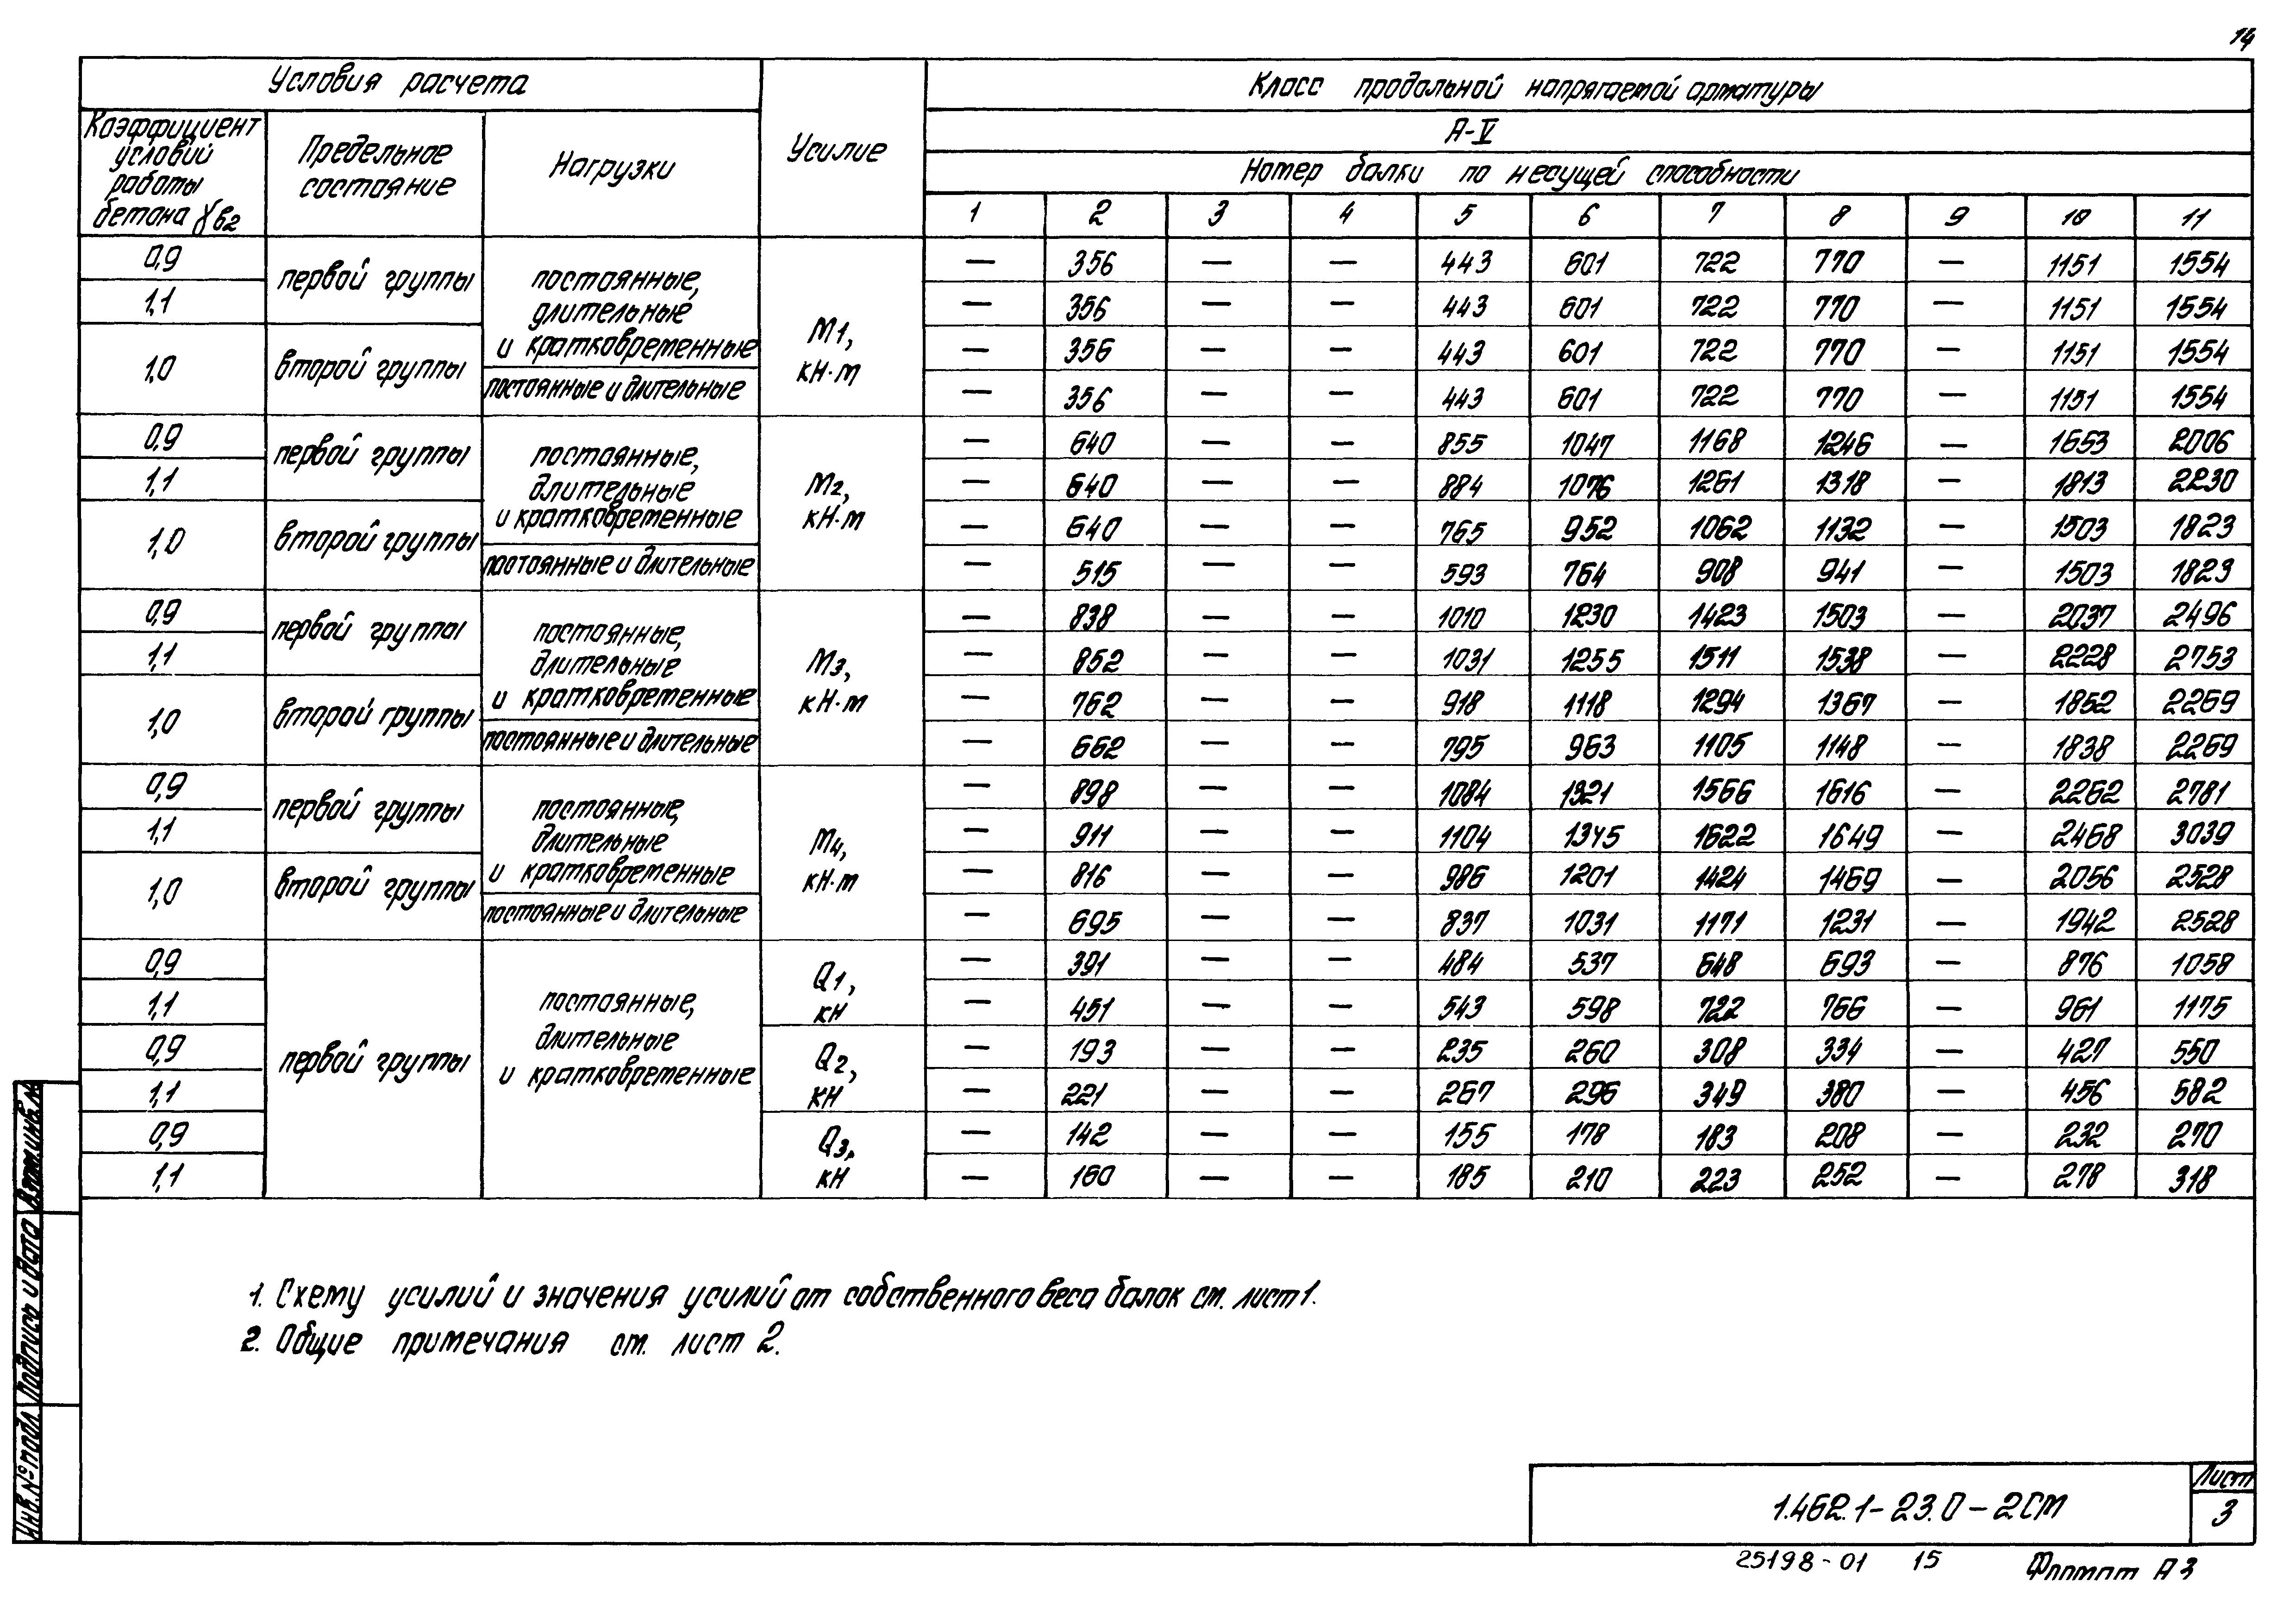 14
Условия расчета
Усилие
Класс продольной напрягаемой арматуры
Коэффициент условий работы бетона γв2
Предельное состояние
Нагрузки
А-V
Номер балки по несущей способности
1 2 3 4 5 6 7 8 9 10 11
0,9 первой группы постоянные, длительные и кратковременные М1, кН·м — 356 — — 443 601 722 770 — 1151 1554
1,1 — 356 — — 443 601 722 770 — 1151 1554
1,0 второй группы — 356 — — 443 601 722 770 — 1151 1554
постоянные и длительные — 356 — — 443 601 722 770 — 1151 1554
0,9 первой группы постоянные, длительные и кратковременные М2, кН·м — 640 — — 855 1047 1168 1246 — 1653 2006
1,1 — 640 — — 884 1076 1261 1318 — 1813 2230
1,0 второй группы — 640 — — 765 952 1062 1132 — 1503 1823
постоянные и длительные — 515 — — 593 764 908 941 — 1503 1823
0,9 первой группы постоянные, длительные и кратковременные М3, кН·м — 838 — — 1010 1230 1423 1503 — 2037 2496
1,1 — 852 — — 1031 1255 1511 1538 — 2228 2753
1,0 второй группы — 762 — — 918 1118 1294 1367 — 1852 2269
постоянные и длительные — 662 — — 795 963 1105 1148 — 1838 2269
0,9 первой группы постоянные, длительные и кратковременные М4, кН·м — 898 — — 1084 1321 1566 1616 — 2262 2781
1,1 — 911 — — 1104 1345 1622 1649 — 2468 3039
1,0 второй группы — 816 — — 986 1201 1424 1469 — 2056 2528
постоянные и длительные — 695 — — 837 1031 1171 1231 — 1942 2528
0,9 первой группы постоянные, длительные и кратковременные Q1, кН — 391 — — 484 537 648 693 — 876 1058
1,1 — 451 — — 543 598 722 766 — 961 1175
0,9 Q2, кН — 193 — — 235 260 308 334 — 427 550
1,1 — 221 — — 267 296 349 380 — 456 582
0,9 Q3, кН — 142 — — 155 178 183 208 — 232 270
1,1 — 160 — — 185 210 223 252 — 278 318
1. Схему усилий и значения усилий от собственного веса балок см. лист 1.
2. Общие примечания см. лист 2.
Инв. № подл. Подпись и дата Взам. инв. №
1.462.1-23.0-2СМ
Лист
3
25198-01 15 Формат А3